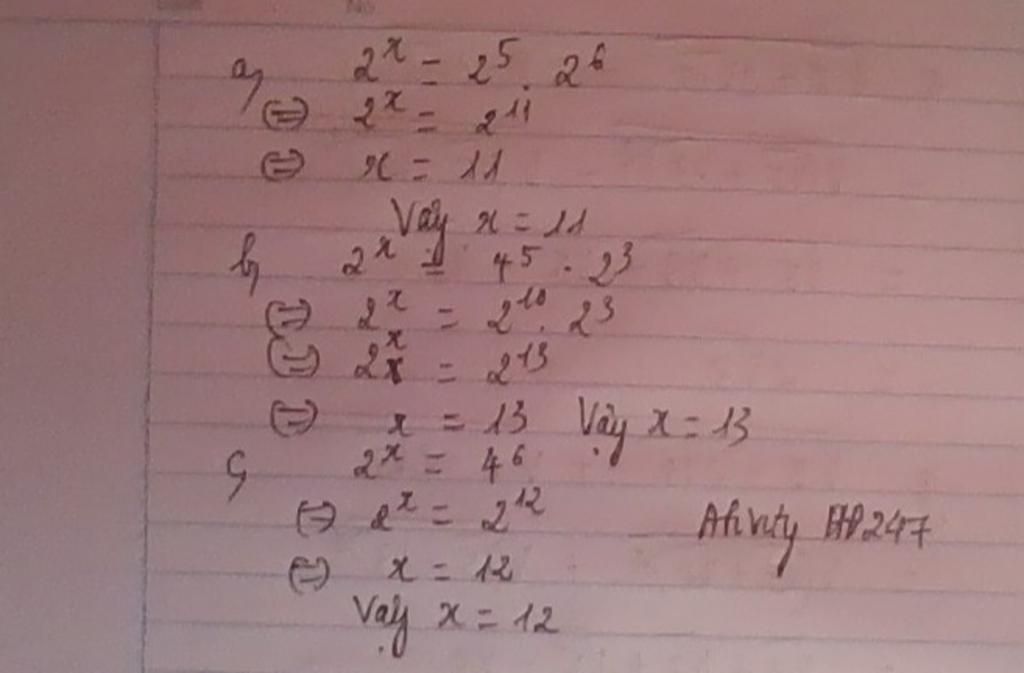 a) 2^x = 2^5 . 2^6
⇔ 2^x = 2^11
⇔ x = 11
Vậy x = 11
b) 2^x = 4^5 . 2^3
⇔ 2^x = 2^10 . 2^3
⇔ 2^x = 2^13
⇔ x = 13 Vậy x = 13
c) 2^x = 4^6
⇔ 2^x = 2^12
⇔ x = 12
Vậy x = 12